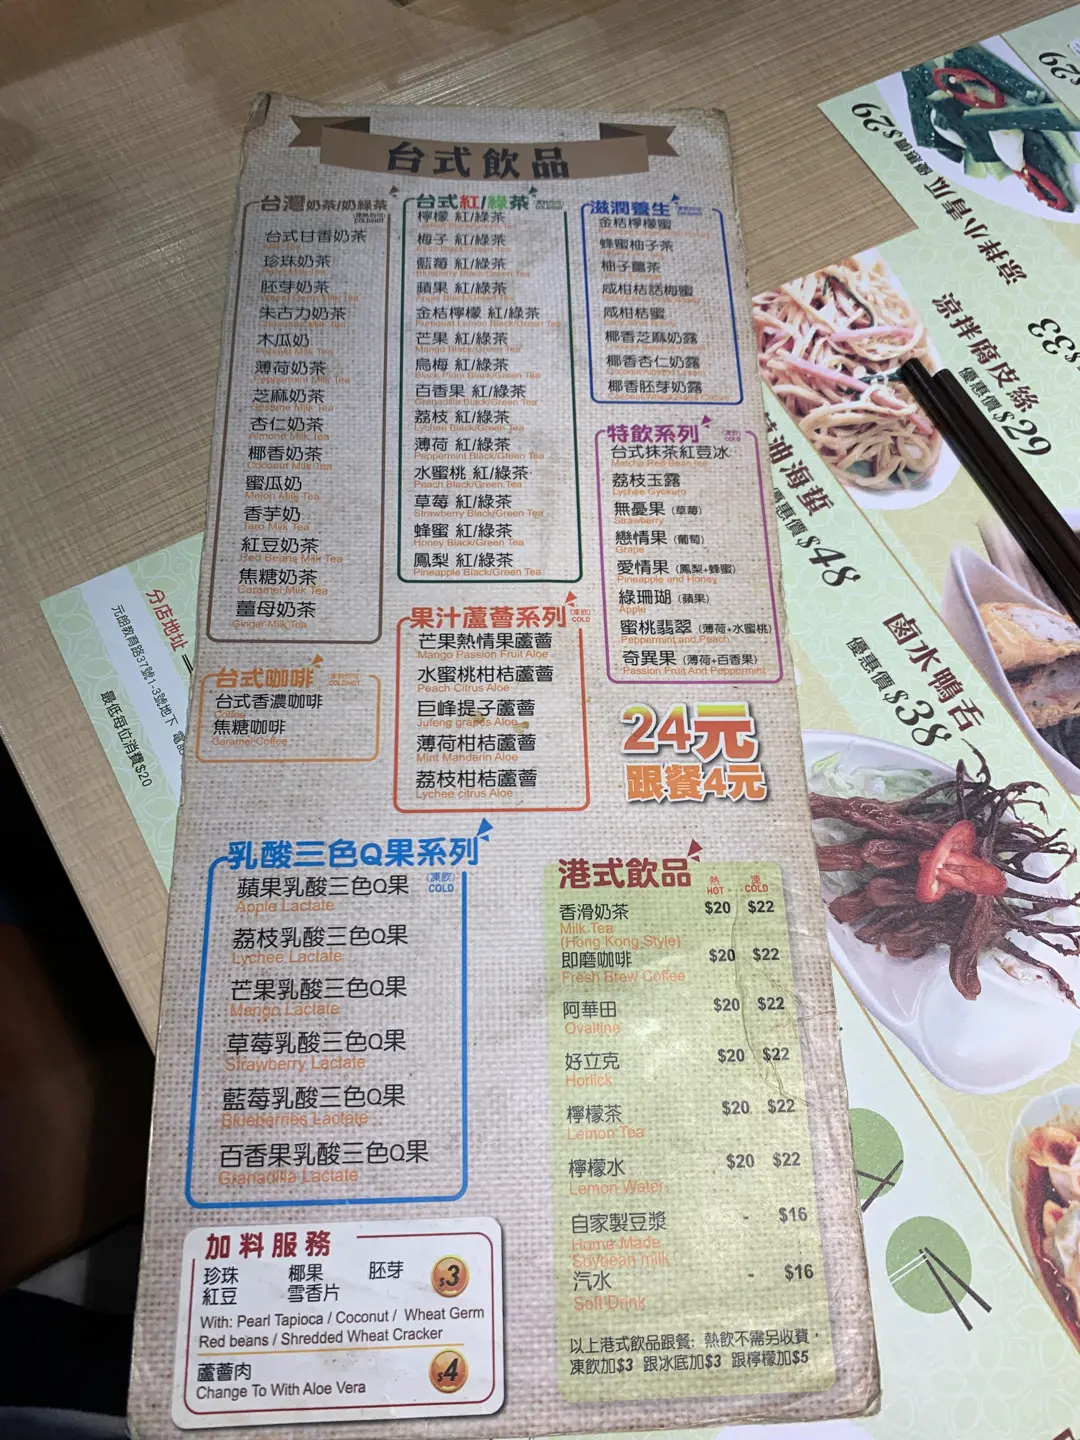 台式飲品
台灣奶茶/奶綠茶
COLD/HOT
台式甘香奶茶
珍珠奶茶
胚芽奶茶
Wheat Germ Milk Tea
朱古力奶茶
Chocolate Milk Tea
木瓜奶
Papaya Milk Tea
薄荷奶茶
Peppermint Milk Tea
芝麻奶茶
Sesame Milk Tea
杏仁奶茶
Almond Milk Tea
椰香奶茶
Coconut Milk Tea
蜜瓜奶
Melon Milk Tea
香芋奶
Taro Milk Tea
紅豆奶茶
Red Beans Milk Tea
焦糖奶茶
Caramel Milk Tea
薑母奶茶
Ginger Milk Tea
台式咖啡
COLD/HOT
台式香濃咖啡
Coffee
焦糖咖啡
Caramel Coffee
台式紅/綠茶
檸檬 紅/綠茶
梅子 紅/綠茶
藍莓 紅/綠茶
Blueberry Black/Green Tea
蘋果 紅/綠茶
Apple Black/Green Tea
金桔檸檬 紅/綠茶
Kumquat Lemon Black/Green Tea
芒果 紅/綠茶
Mango Black/Green Tea
烏梅 紅/綠茶
Black Plum Black/Green Tea
百香果 紅/綠茶
Granadilla Black/Green Tea
荔枝 紅/綠茶
Lychee Black/Green Tea
薄荷 紅/綠茶
Peppermint Black/Green Tea
水蜜桃 紅/綠茶
Peach Black/Green Tea
草莓 紅/綠茶
Strawberry Black/Green Tea
蜂蜜 紅/綠茶
Honey Black/Green Tea
鳳梨 紅/綠茶
Pineapple Black/Green Tea
果汁蘆薈系列
(凍飲)
COLD
芒果熱情果蘆薈
Mango Passion Fruit Aloe
水蜜桃柑桔蘆薈
Peach Citrus Aloe
巨峰提子蘆薈
Jufeng grapes Aloe
薄荷柑桔蘆薈
Mint Mandarin Aloe
荔枝柑桔蘆薈
Lychee citrus Aloe
滋潤養生
金桔檸檬蜜
蜂蜜柚子茶
柚子薑茶
咸柑桔話梅蜜
咸柑桔蜜
椰香芝麻奶露
椰香杏仁奶露
椰香胚芽奶露
特飲系列
(凍飲)
COLD
台式抹茶紅荳冰
Matcha Red Bean Ice
荔枝玉露
Lychee Gyokuro
無憂果 (草莓)
Strawberry
戀情果 (葡萄)
Grape
愛情果 (鳳梨+蜂蜜)
Pineapple and Honey
綠珊瑚 (蘋果)
Apple
蜜桃翡翠 (薄荷+水蜜桃)
Peppermint and Peach
奇異果 (薄荷+百香果)
Passion Fruit And Peppermint
24元
跟餐4元
乳酸三色Q果系列
(凍飲)
COLD
蘋果乳酸三色Q果
Apple Lactate
荔枝乳酸三色Q果
Lychee Lactate
芒果乳酸三色Q果
Mango Lactate
草莓乳酸三色Q果
Strawberry Lactate
藍莓乳酸三色Q果
Blueberries Lactate
百香果乳酸三色Q果
Granadilla Lactate
加料服務
珍珠 椰果 胚芽
紅豆 雪香片
$3
With: Pearl Tapioca / Coconut / Wheat Germ
Red beans / Shredded Wheat Cracker
蘆薈肉
Change To With Aloe Vera
$4
港式飲品
熱 凍
HOT COLD
香滑奶茶 $20 $22
Milk Tea
(Hong Kong Style)
即磨咖啡 $20 $22
Fresh Brew Coffee
阿華田 $20 $22
Ovaltine
好立克 $20 $22
Horlick
檸檬茶 $20 $22
Lemon Tea
檸檬水 $20 $22
Lemon Water
自家製豆漿 - $16
Home Made
Soybean milk
汽水 - $16
Soft Drink
以上港式飲品跟餐: 熱飲不需另收費，
凍飲加$3 跟冰底加$3 跟檸檬加$5
分店地址
元朗教育路37號1-3號地下
最低每位消費$20
$29
優惠價$29
涼拌小青瓜
$33
涼拌腐皮絲
優惠價$29
油海蜇
優惠價$48
鹵水鴨舌
優惠價$38